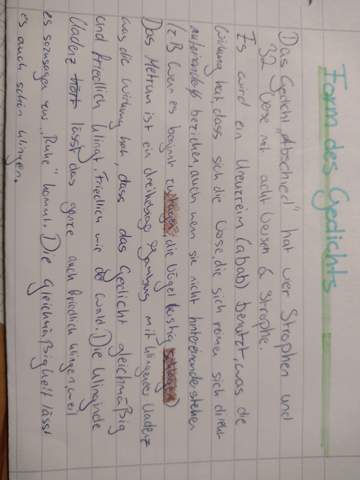 Form des Gedichts
Das Gedicht „Abschied" hat vier Strophen und
32 Verse mit acht Versen & Strophe.
Es wird ein Kreuzreim (abab) benutzt, was die
Wirkung hat, dass sich die Verse, die sich reimen sich direkt
aufeinander beziehen, auch wenn sie nicht hintereinander stehen
(z.B Wenn es beginnt zu tagen, die Vögel lustig schlagen)
Das Metrum ist ein dreihebiger Jambus mit klingender Kadenz
was die Wirkung hat, dass das Gedicht gleichmäßig
und friedlich klingt. Friedlich wie der Wald. Die klingende
Kadenz lässt das ganze auch friedlich klingen, weil
es sozusagen zur „Ruhe" kommt. Die Gleichmäßigkeit lässt
es auch schön klingen.